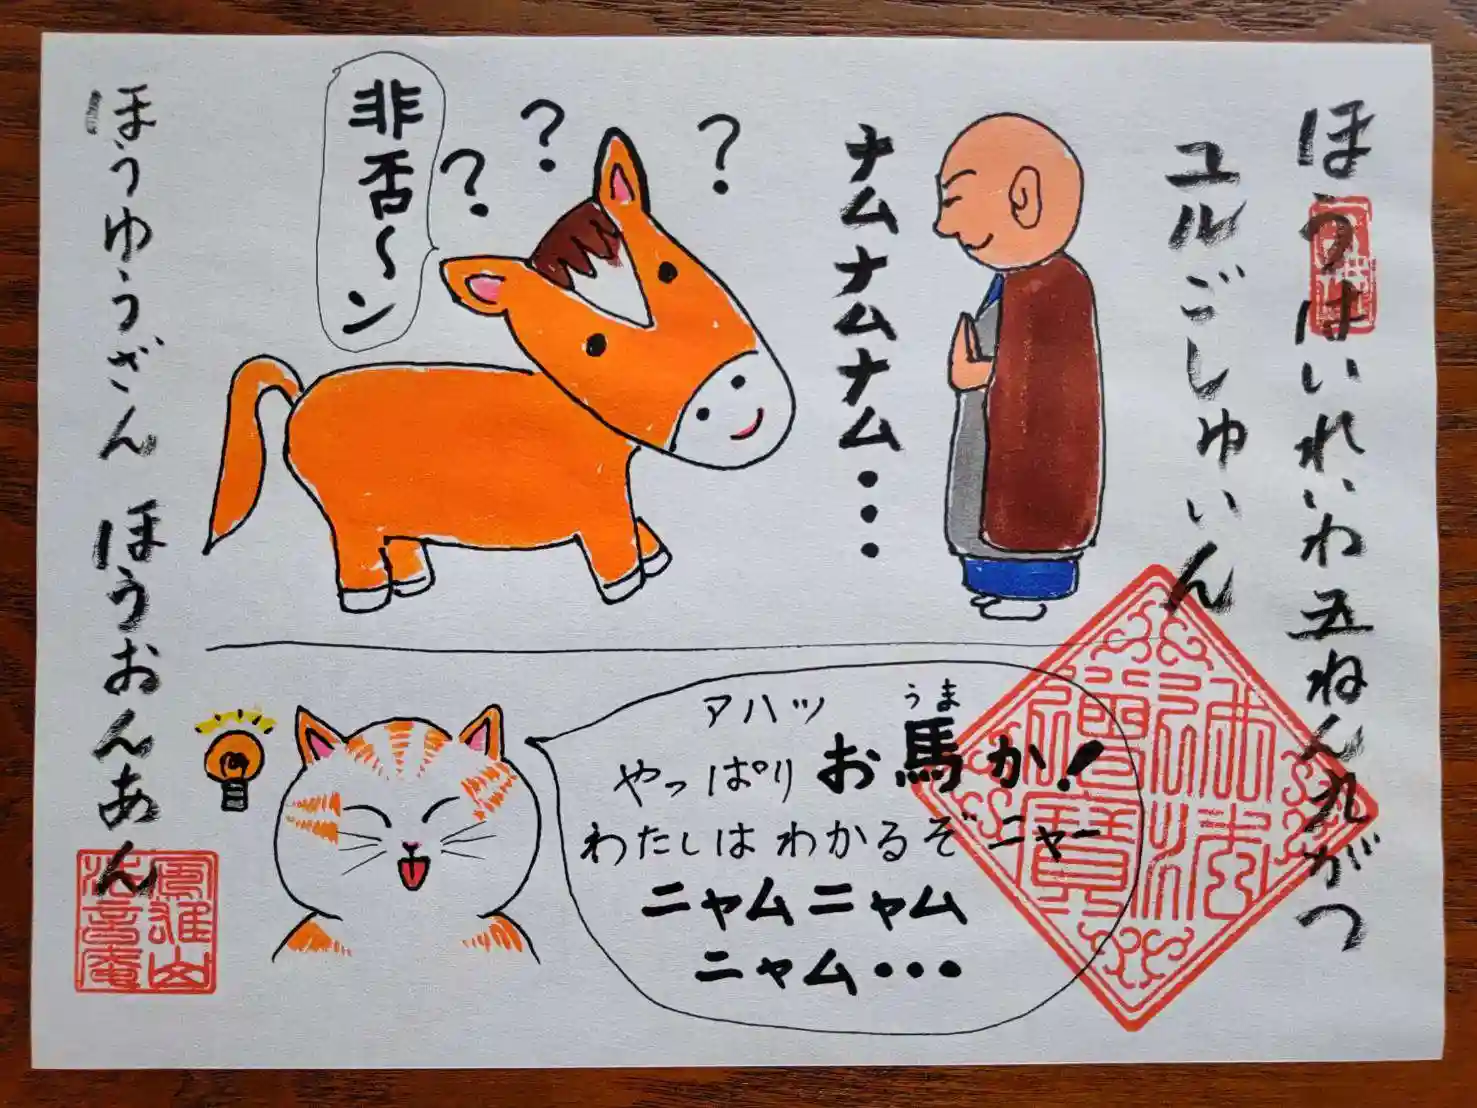 ほうはいれいわ五ねん九がつ
ユルごしゅいん
ナムナムナム・・・
?
?
?
非否〜ン
アハッ
うま
やっぱりお馬か!
わたしはわかるぞニャー
ニャムニャム
ニャム・・・
ほうゆうざん ほうおんあん